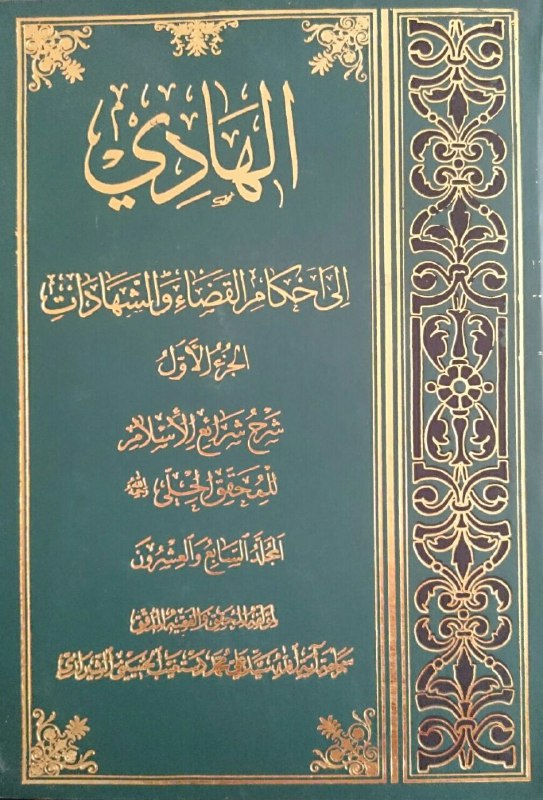 الهَادِي
إلى أحكام القضاء والشهادات
الجزء الأول
شرح شرائع الإسلام
للمحقق الحلي رحمه الله
المجلد السابع والعشرون
لمؤلفه المحقق والفقيه المدقق
سماحة آية الله السيد علي محمد دستغيب الحسيني الشيرازي